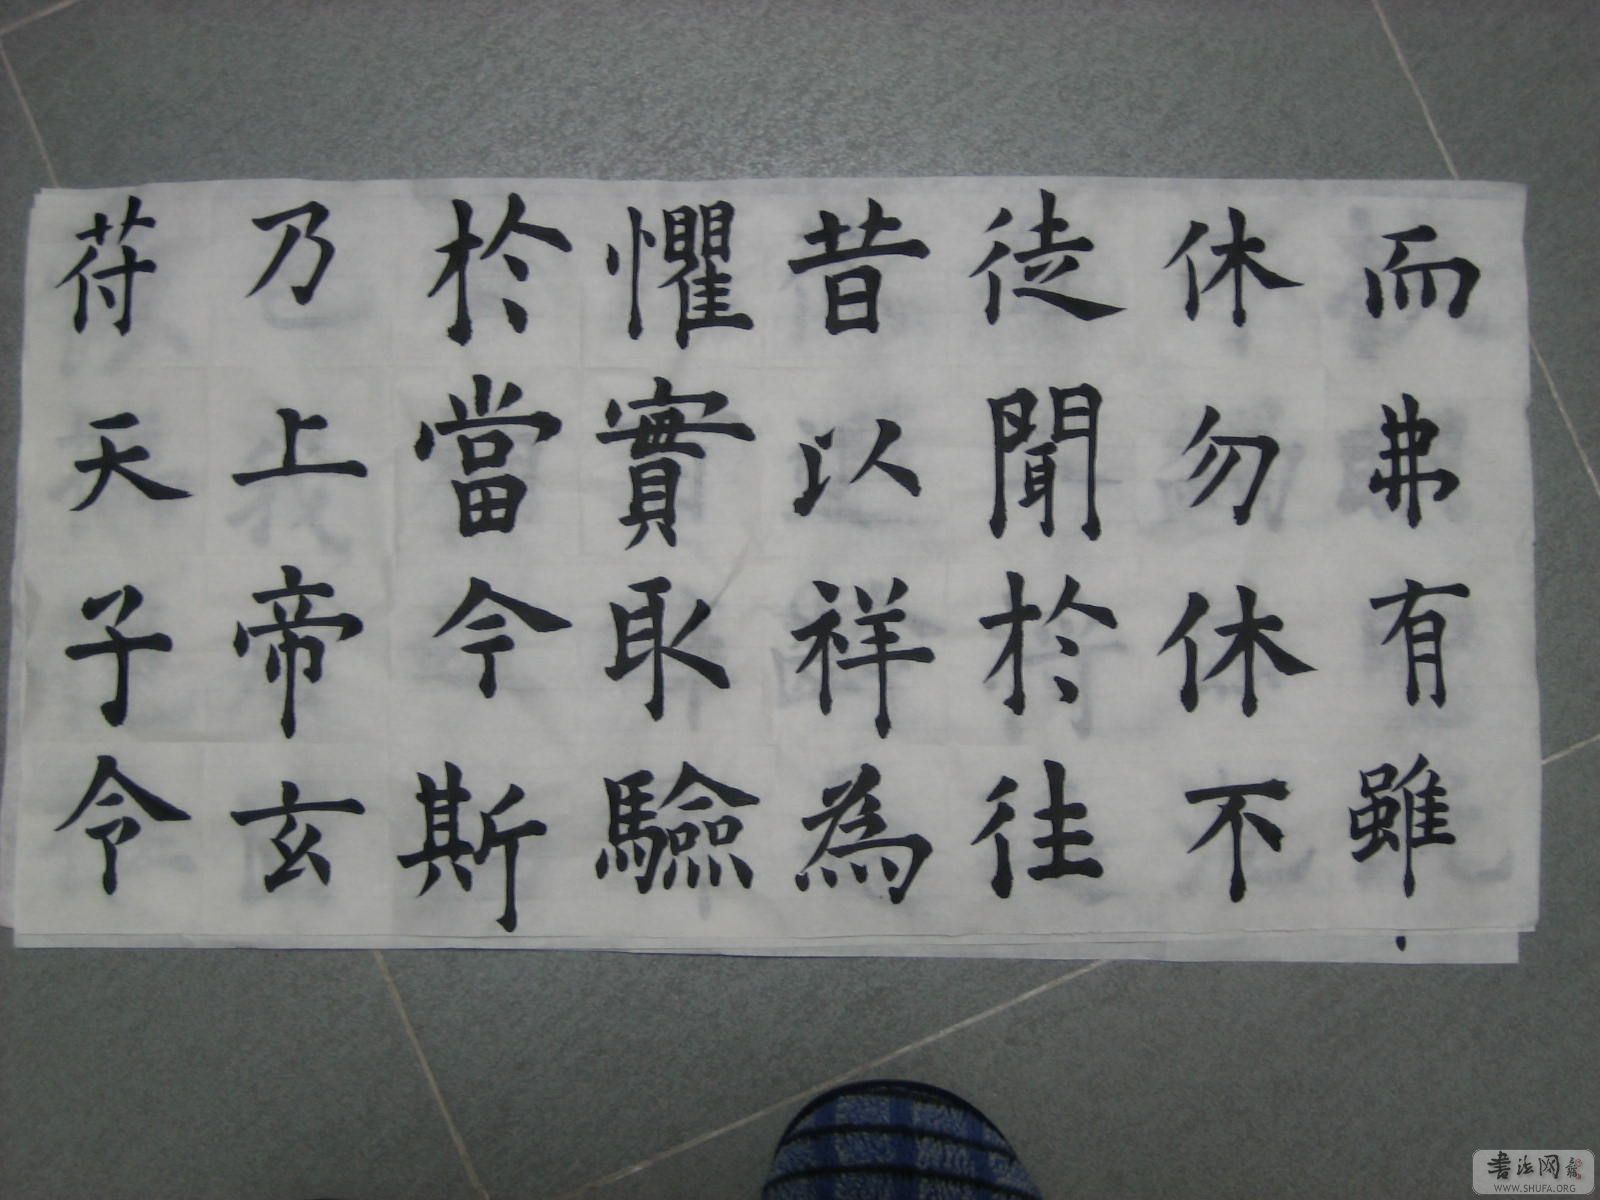 而弗有雖
休勿休不
徒聞於往
昔以祥為
懼實取驗
於當今斯
乃上帝玄
苻天子令
書法网
WWW.SHUFA.ORG